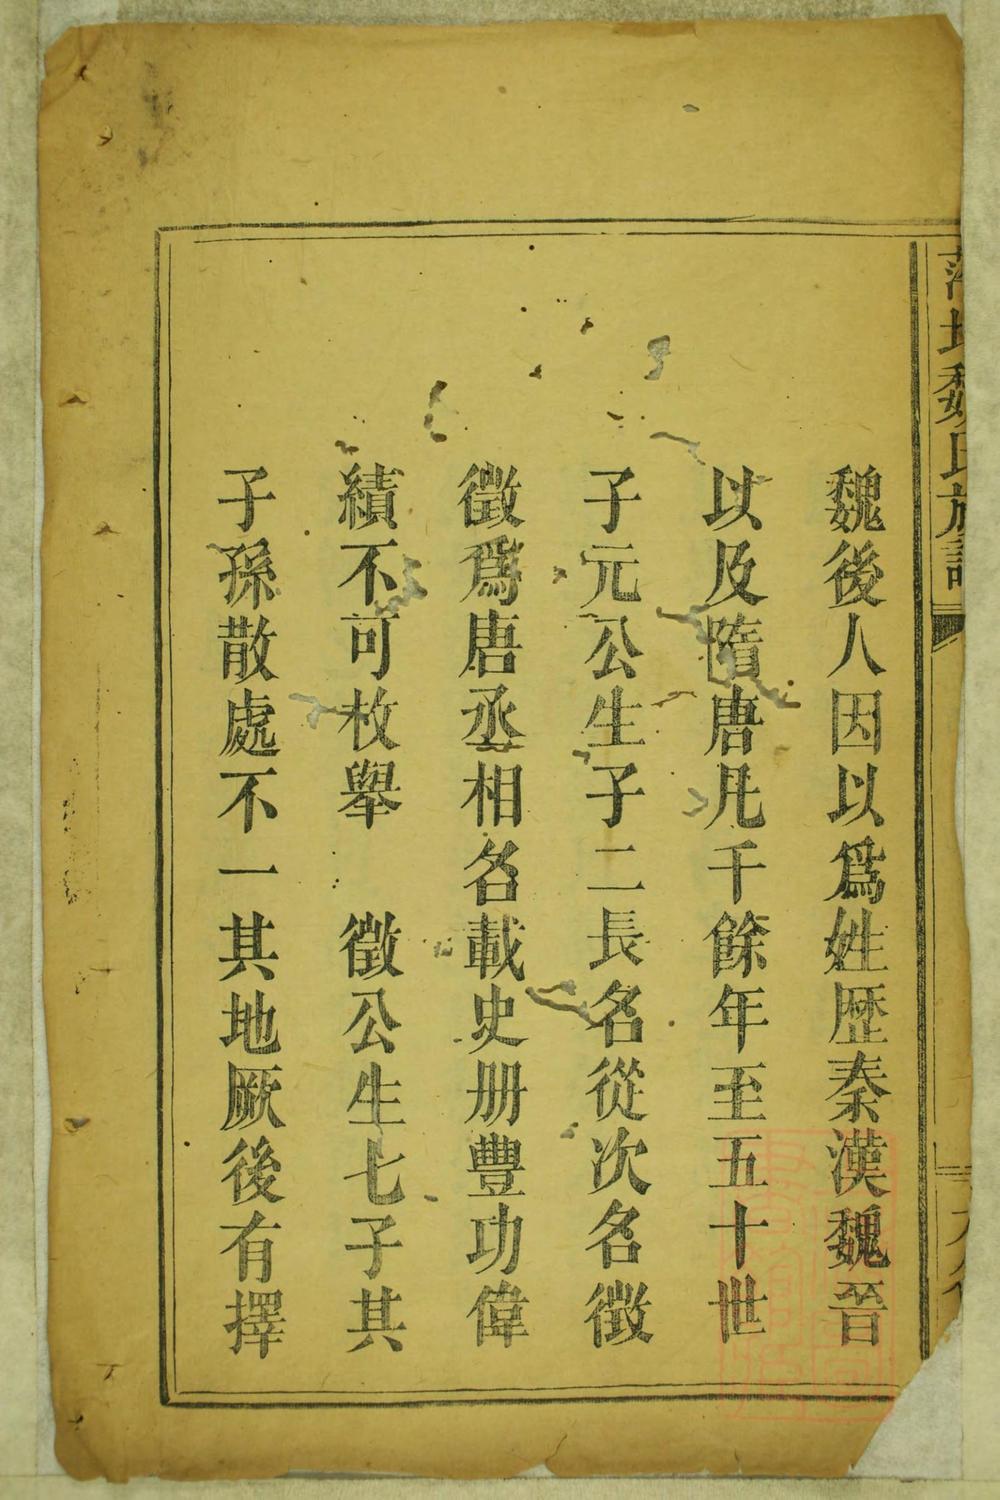 魏後人因以爲姓歴秦漢魏晉
以及隋唐凡千餘年至五十世
子元公生子二長名從次名徵
徵爲唐丞相名載史册豐功偉
績不可枚舉　徵公生七子其
子孫散處不一其地厥後有擇
魏氏族譜